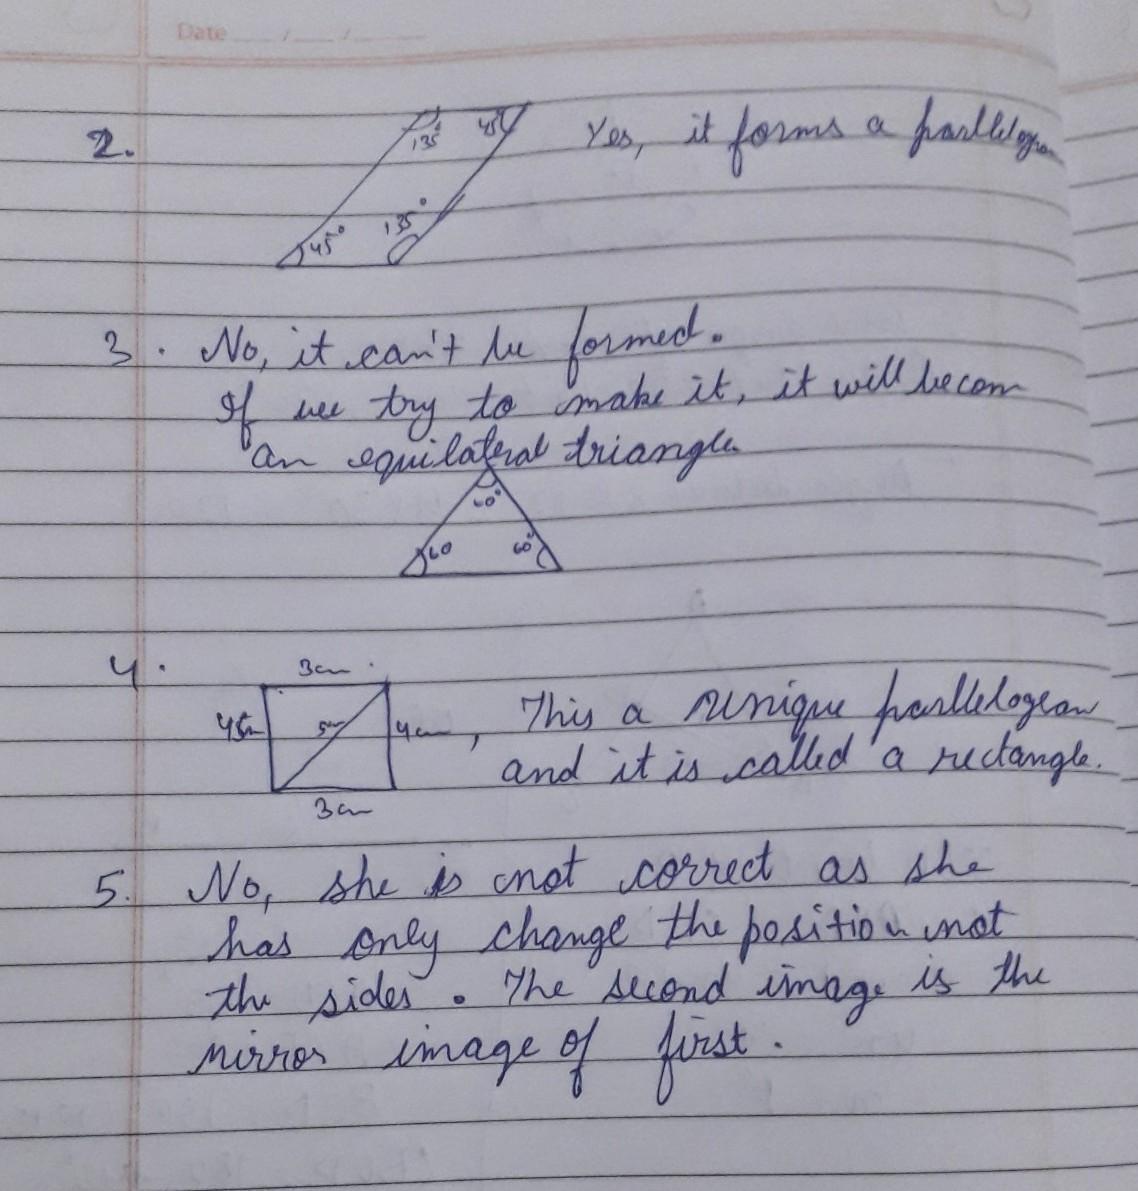 Date __/__/__
2. 135° 45° Yes, it forms a parllelogram
45° 135°
3. No, it can't be formed.
If we try to make it, it will becom
an equilateral triangle.
60°
60 60°
4. 3cm
4cm 5cm 4cm, This a unique parllelogram
and it is called a rectangle.
3cm
5. No, she is not correct as she
has only change the position not
the sides. The second image is the
mirror image of first.